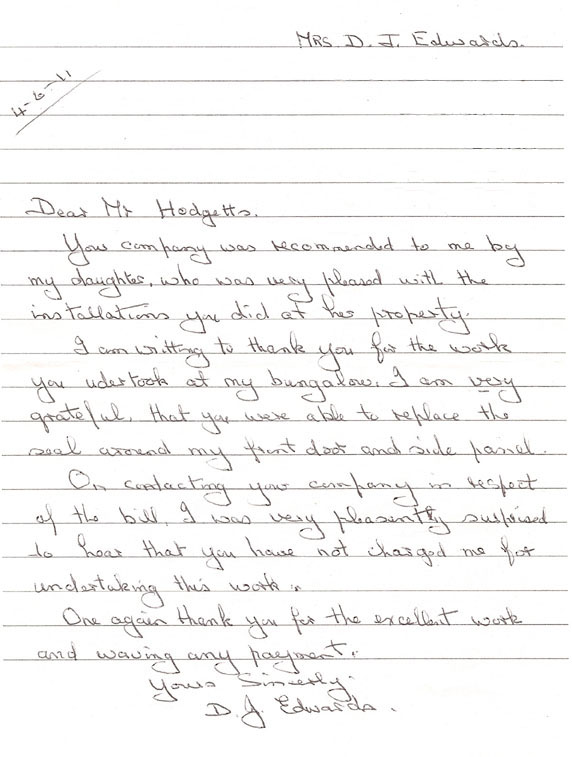 MRS D. J. Edwards.
4-6-11
Dear Mr Hodgetts.
Your company was recommended to me by
my daughter, who was very pleased with the
installations you did at her property.
I am writting to thank you for the work
you udertook at my bungalow. I am very
grateful, that you were able to replace the
seal around my front door and side panel.
On contacting your company in respect
of the bill, I was very pleasently surprised
to hear that you have not charged me for
undertaking this work.
One again thank you for the excellent work
and waving any payment.
Yours Sincerly.
D. J. Edwards.